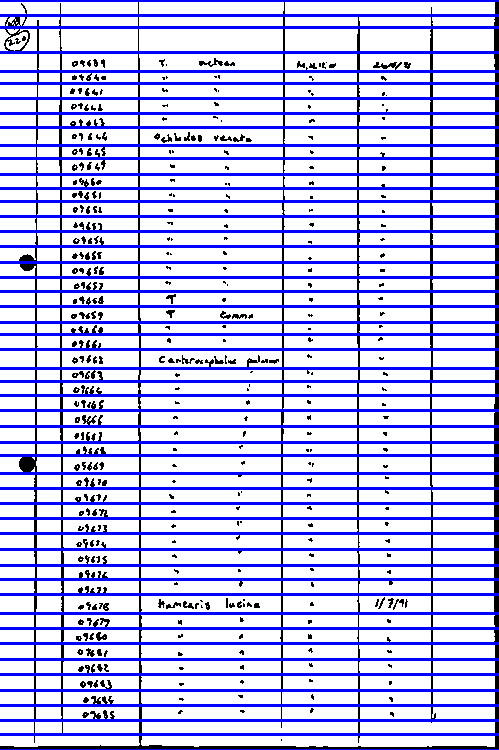 220
09639 T. acteon M.N.K.W 24/6/91
09640 " " " "
09641 " " " "
09642 " " " "
09643 " " " "
09644 Ochlodes venata " "
09645 " " " "
09647 " " " "
09650 " " " "
09651 " " " "
09652 " " " "
09653 " " " "
09654 " " " "
09655 " " " "
09656 " " " "
09657 " " " "
09658 T " " "
09659 T Comma " "
09660 " " " "
09661 " " " "
09662 Carterocephalus palaemon " "
09663 " " " "
09664 " " " "
09665 " " " "
09666 " " " "
09667 " " " "
09668 " " " "
09669 " " " "
09670 " " " "
09671 " " " "
09672 " " " "
09673 " " " "
09674 " " " "
09675 " " " "
09676 " " " "
09677 " " " "
09678 Hamearis lucina " 1/7/91
09679 " " " "
09680 " " " "
09681 " " " "
09682 " " " "
09683 " " " "
09684 " " " "
09685 " " " "